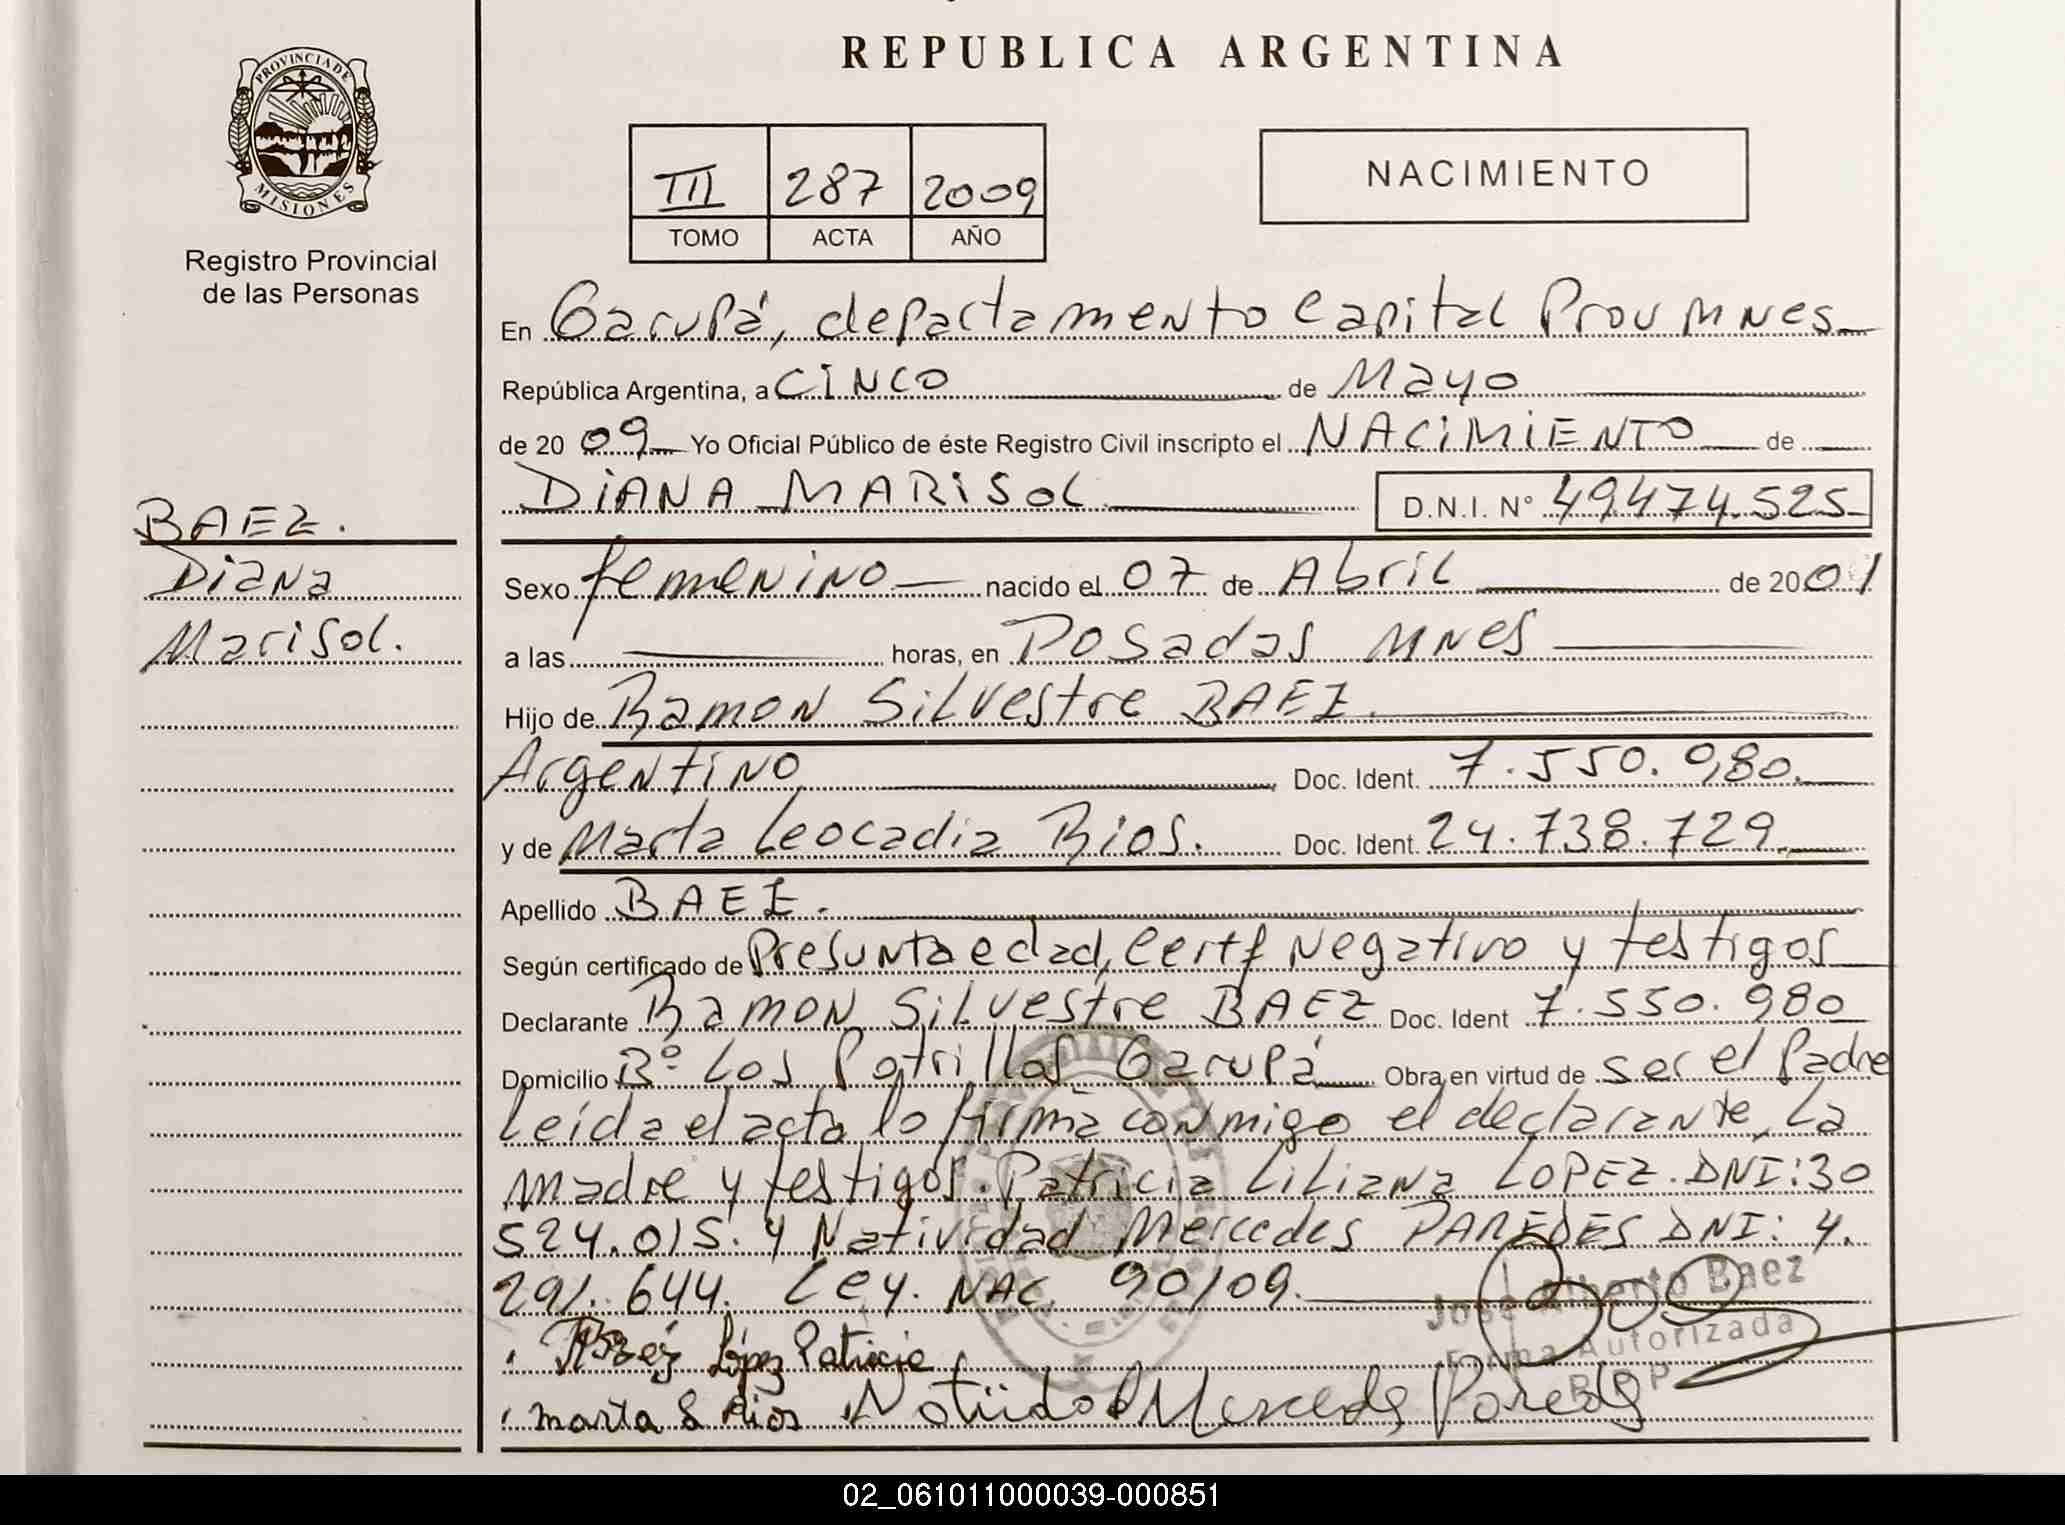 REPUBLICA ARGENTINA
PROVINCIA DE
MISIONES
Registro Provincial
de las Personas
III 287 2009
TOMO ACTA AÑO
NACIMIENTO
En Garupá, departamento Capital Prov Mnes
República Argentina, a CINCO de Mayo
de 20 09 Yo Oficial Público de éste Registro Civil inscripto el NACIMIENTO de
DIANA MARISOL D.N.I. N° 49.474.525
BAEZ.
Diana
Marisol.
Sexo femenino nacido el 07 de Abril de 2001
a las horas, en Posadas Mnes
Hijo de Ramon Silvestre BAEZ.
Argentino Doc. Ident. 7.550.980.
y de Marta Leocadia Rios. Doc. Ident. 24.738.729
Apellido BAEZ.
Según certificado de Presunta edad, Certf Negativo y testigos
Declarante Ramon Silvestre BAEZ Doc. Ident 7.550.980
Domicilio B° Los Potrillos Garupá Obra en virtud de ser el Padre
Leída el acta lo firma conmigo el declarante, la
madre y testigos. Patricia Liliana LOPEZ. DNI: 30
524.015. y Natividad Mercedes PAREDES DNI: 4.
291.644. Ley. NAC. 90/09.
José Alberto Baez
Firma Autorizada
R P P
López Patricia
marta L Rios Mercedes Paredes
02_061011000039-000851